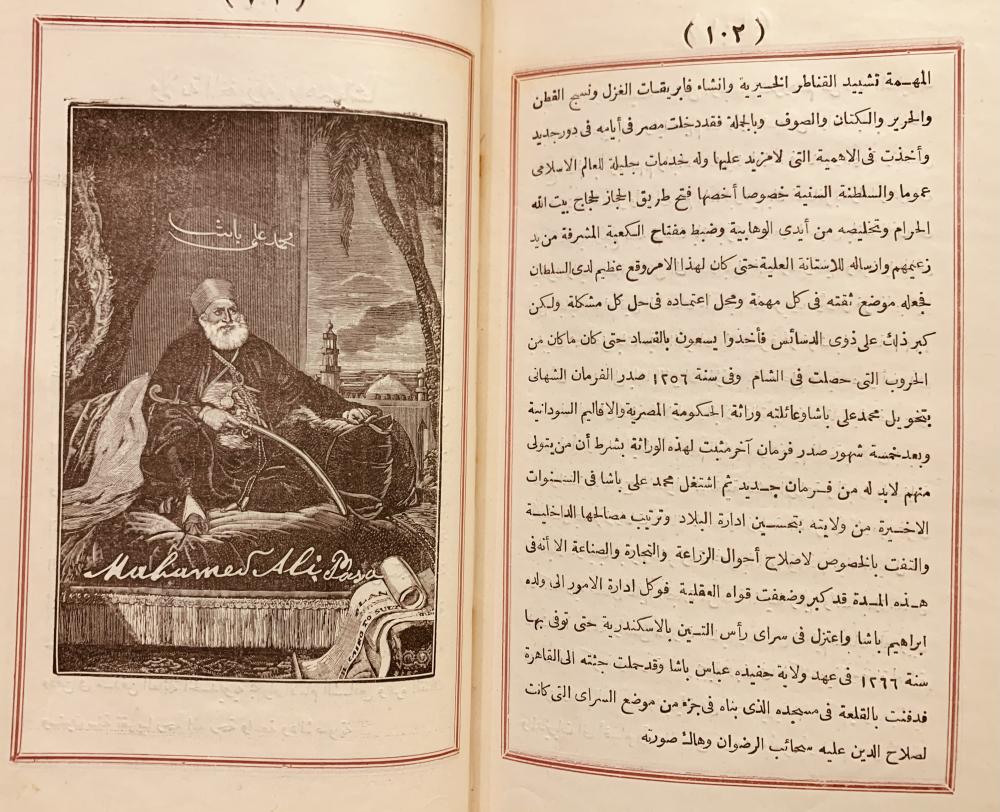 (١٠٢)
المهمة تشييد القناطر الخيرية وانشاء فابريقات الغزل ونسج القطن
والحرير والكتان والصوف وبالجملة فقد دخلت مصر فى أيامه فى دور جديد
وأخذت فى الاهمية التى لا مزيد عليها وله خدمات جليلة للعالم الاسلامى
عموما والسلطنة السنية خصوصا أخصها فتح طريق الحجاز لحجاج بيت الله
الحرام وتخليصه من أيدى الوهابية وضبط مفتاح الكعبة المشرفة من يد
زعيمهم وارساله للاستانة العلية حتى كان لهذا الامر وقع عظيم لدى السلطان
فجعله موضع ثقته فى كل مهمة ومحل اعتماده فى حل كل مشكلة ولكن
كبر ذلك على ذوى الدسائس فأخذوا يسعون بالفساد حتى كان ما كان من
الحروب التى حصلت فى الشام وفى سنة ١٢٥٦ صدر الفرمان الشهانى
بتخويل محمد على باشا وعائلته وراثة الحكومة المصرية والاقاليم السودانية
وبعد خمسة شهور صدر فرمان آخر مثبت لهذه الوراثة بشرط أن من يتولى
منهم لابد له من فرمان جديد ثم اشتغل محمد على باشا فى السنوات
الاخيرة من ولايته بتحسين ادارة البلاد وترتيب مصالحها الداخلية
والتفت بالخصوص لاصلاح أحوال الزراعة والتجارة والصناعة الا أنه فى
هذه المدة قد كبر وضعفت قواه العقلية فوكل ادارة الامور الى ولده
ابراهيم باشا واعتزل فى سراى رأس التين بالاسكندرية حتى توفى بها
سنة ١٢٦٦ فى عهد ولاية حفيده عباس باشا وقد حملت جثته الى القاهرة
فدفنت بالقلعة فى مسجده الذى بناه فى جزء من موضع السراى التى كانت
لصلاح الدين عليه سحائب الرضوان وهاك صورته
محمد على باشا
Mahamed Ali Pasa
TO SUEZ